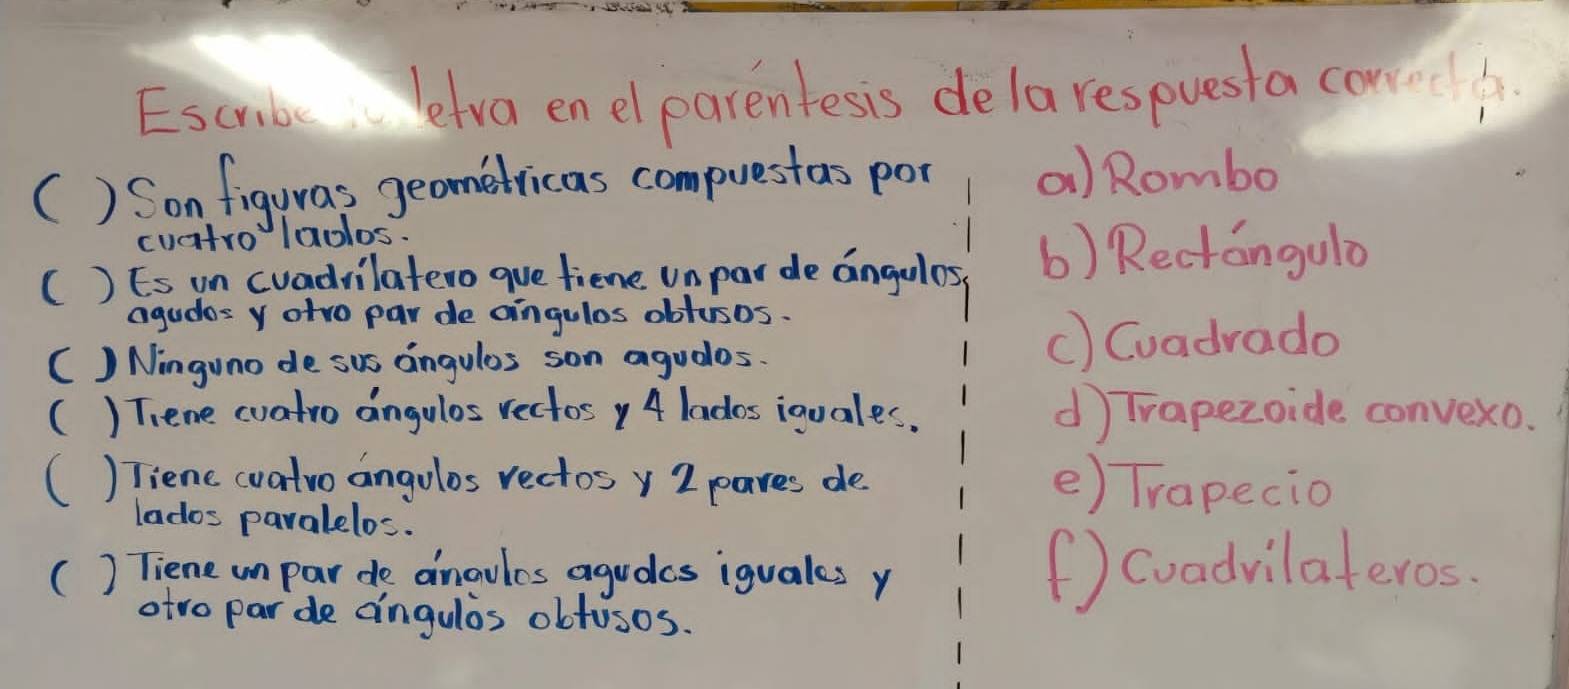 Escribe la letra en el paréntesis de la respuesta correcta.
( ) Son figuras geométricas compuestas por
cuatro lados.
( ) Es un cuadrilatero que tiene un par de ángulos
agudos y otro par de ángulos obtusos.
( ) Ninguno de sus ángulos son agudos.
( ) Tiene cuatro ángulos rectos y 4 lados iguales.
( ) Tiene cuatro ángulos rectos y 2 pares de
lados paralelos.
( ) Tiene un par de ángulos agudos iguales y
otro par de ángulos obtusos.
a) Rombo
b) Rectángulo
c) Cuadrado
d) Trapezoide convexo.
e) Trapecio
f) Cuadrilateros.